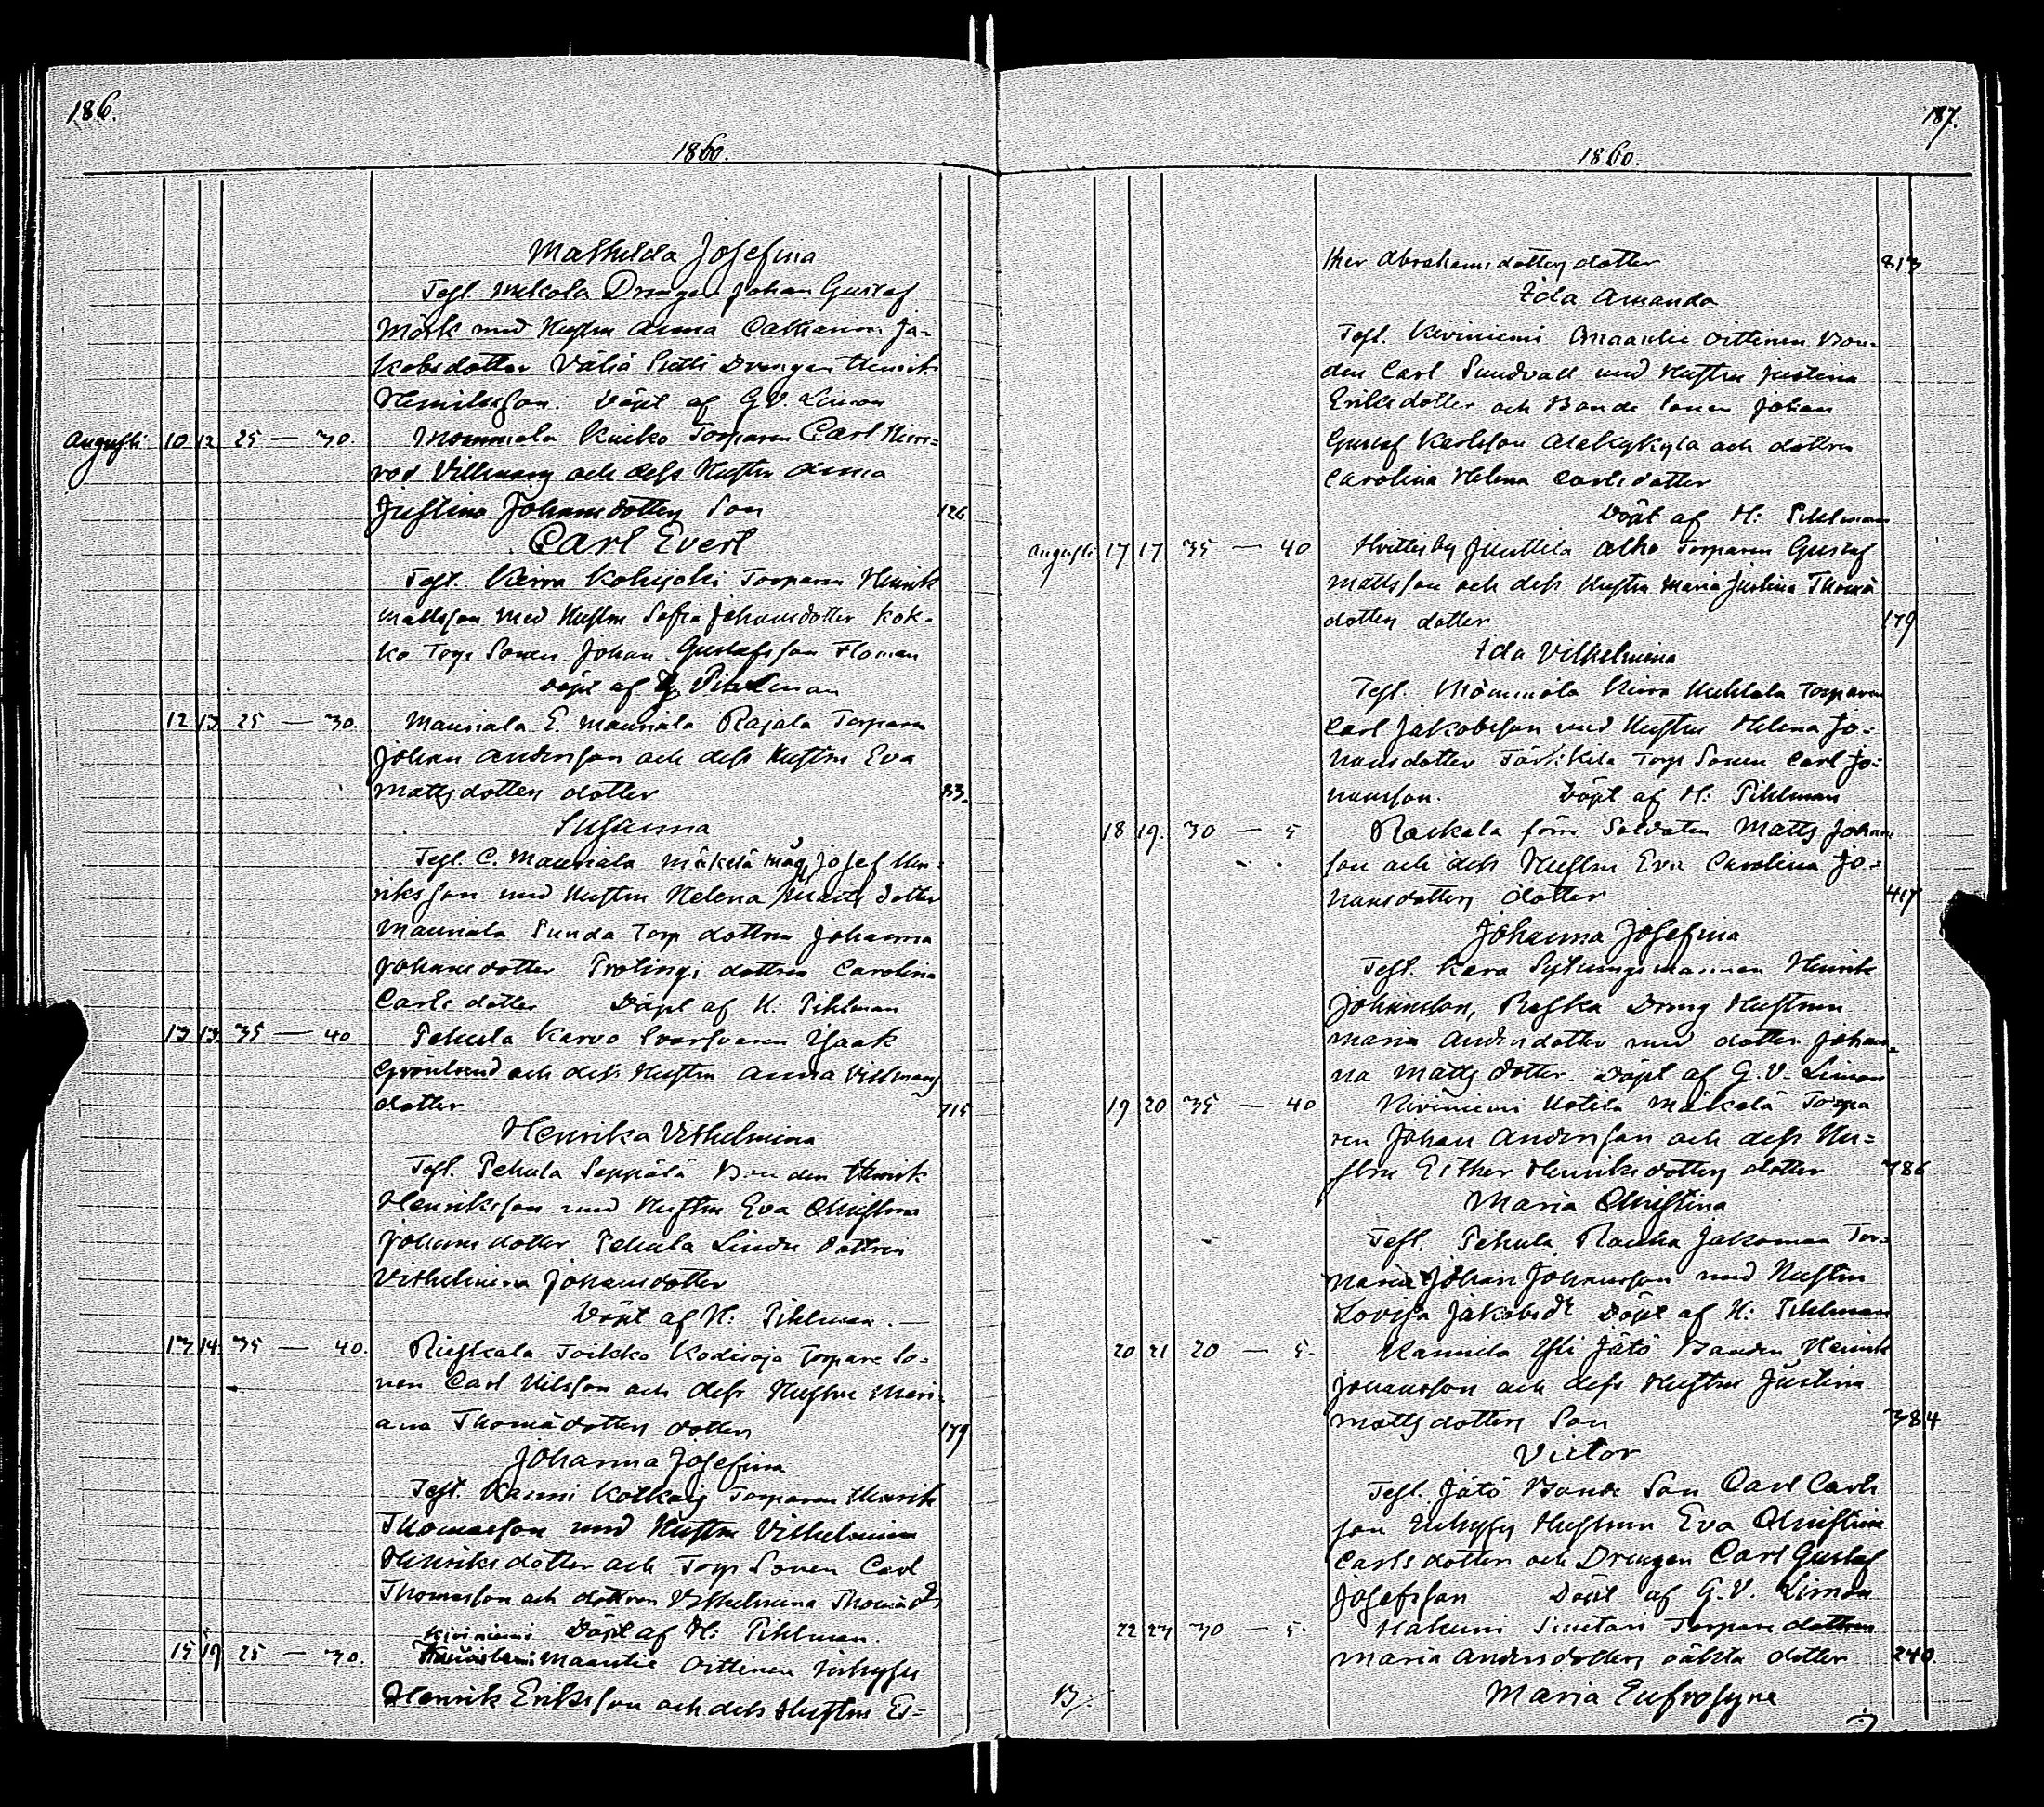 186.
1860.
Mathilda Josefina
Test. Mekola Drengen Johan Gustaf
Mörk med Hustru Anna Catharina Ja-
kobsdotter Väliä Drengen Henrik
Henriksson. Döpt af G.V. Limon
Augusti 10 12 25 — 30. Mommola Kuiko Torparen Carl Him-
rod Villmarz och dess Hustru Anna
Justina Johansdotters Son 126
Carl Evert
Test. Kirra Kohijoki Torparen Henrik
Mattsson med Hustru Sofia Johansdotter Kok-
ko Torp Sonen Johan Gustafsson Floman
Döpt af Pihlman
12 13 25 — 30. Mauriala E. Mauriala Rajala Torparen
Johan Andersson och dess Hustru Eva
Mattsdotters dotter 83.
Susanna
Test. C. Mauriala Mäkelä måg Josef Hen-
riksson med Hustru Helena Matts dotter
Mauriala Sunda Torp dottren Johanna
Johansdotter Prolingi dottren Carolina
Carls dotter Döpt af H. Pihlman
13 13. 35 — 40 Pehula Karvo Svarfvaren Isaak
Grönlund och dess Hustru Anna Villmarz
dotter 715
Henrika Vilhelmina
Test. Pehula Seppälä Bonden Henrik
Henriksson med Hustru Eva Christina
Johansdotter Pehula Lindu dottren
Vilhelmina Johansdotter
Döpt af H: Pihlman. —
13 14. 35 — 40. Rieskala Toikko Kodisoja Torpare So-
nen Carl Nilsson och dess Hustru Mari-
ana Thomædotters dotter 179
Johanna Josefina
Test. Kaurri Kolkaij Torparen Henrik
Thomasson med Hustru Vilhelmina
Henriksdotter och Torp Sonen Carl
Thomasson och dottren Vilhelmina Thomæ dr
Kiviniemi Döpt af H: Pihlman.
15 19 25 — 30. Maantie Oittinen Inhyses
Henrik Eriksson och dess Hustru Es-
187.
1860.
ther Abrahamsdotters dotter 813
Ida Amanda
Test. Kiviniemi Maantie Oittinen Bon-
den Carl Sundvall med Hustru Justina
Eriksdotter och Bonde Sonen Johan
Gustaf Karlsson Alakyla och dottren
Carolina Helena Carlsdotter
Döpt af H: Pihlman
Augusti 17 17 35 — 40 Hvittisby Junttila Alho Torparen Gustaf
Mattsson och dess Hustru Maria Justina Thomæ
dotters dotter 179
Ida Vilhelmina
Test. Mommola Kirra Uuhtala Torparen
Carl Jakobsson med Hustru Helena Jo-
hansdotter Torp Sonen Carl Jo-
hansson. Döpt af H: Pihlman
18 19. 30 — 5 Raskala förre Soldaten Matts Johans
son och dess Hustru Eva Carolina Jo-
hansdotters dotter 417
Johanna Josefina
Test. Kara Sytningsmannen Henrik
Johansson, Raska Dreng Hustrun
Maria Andersdotter med dotter Johan-
na Matts dotter. Döpt af G.V. Limon
19 20 35 — 40 Kiviniemi Uotila Mäkelä Torpa
ren Johan Andersson och dess Hu-
stru Esther Henriksdotters dotter 786
Maria Christina
Test. Pehula Rauha Jakomaa Tor-
Johan Johansson med Hustru
Lovisa Jakobs dr Döpt af H: Pihlman
20 21 20 — 5. Kannila Yli Jätö Bonden Henrik
Johansson och dess Hustru Justina
Mattsdotters Son 384
Victor
Test. Jätö Bonde Son Carl Carls
son Inhyses Hustrun Eva Christina
Carlsdotter och Drengen Carl Gustaf
Josefsson Döpt af G.V. Limon
22 23 30 — 5. Hakuni Simitari Torpare dottren
Maria Andersdotters oäkta dotter 240.
B: Maria Eufrosyne